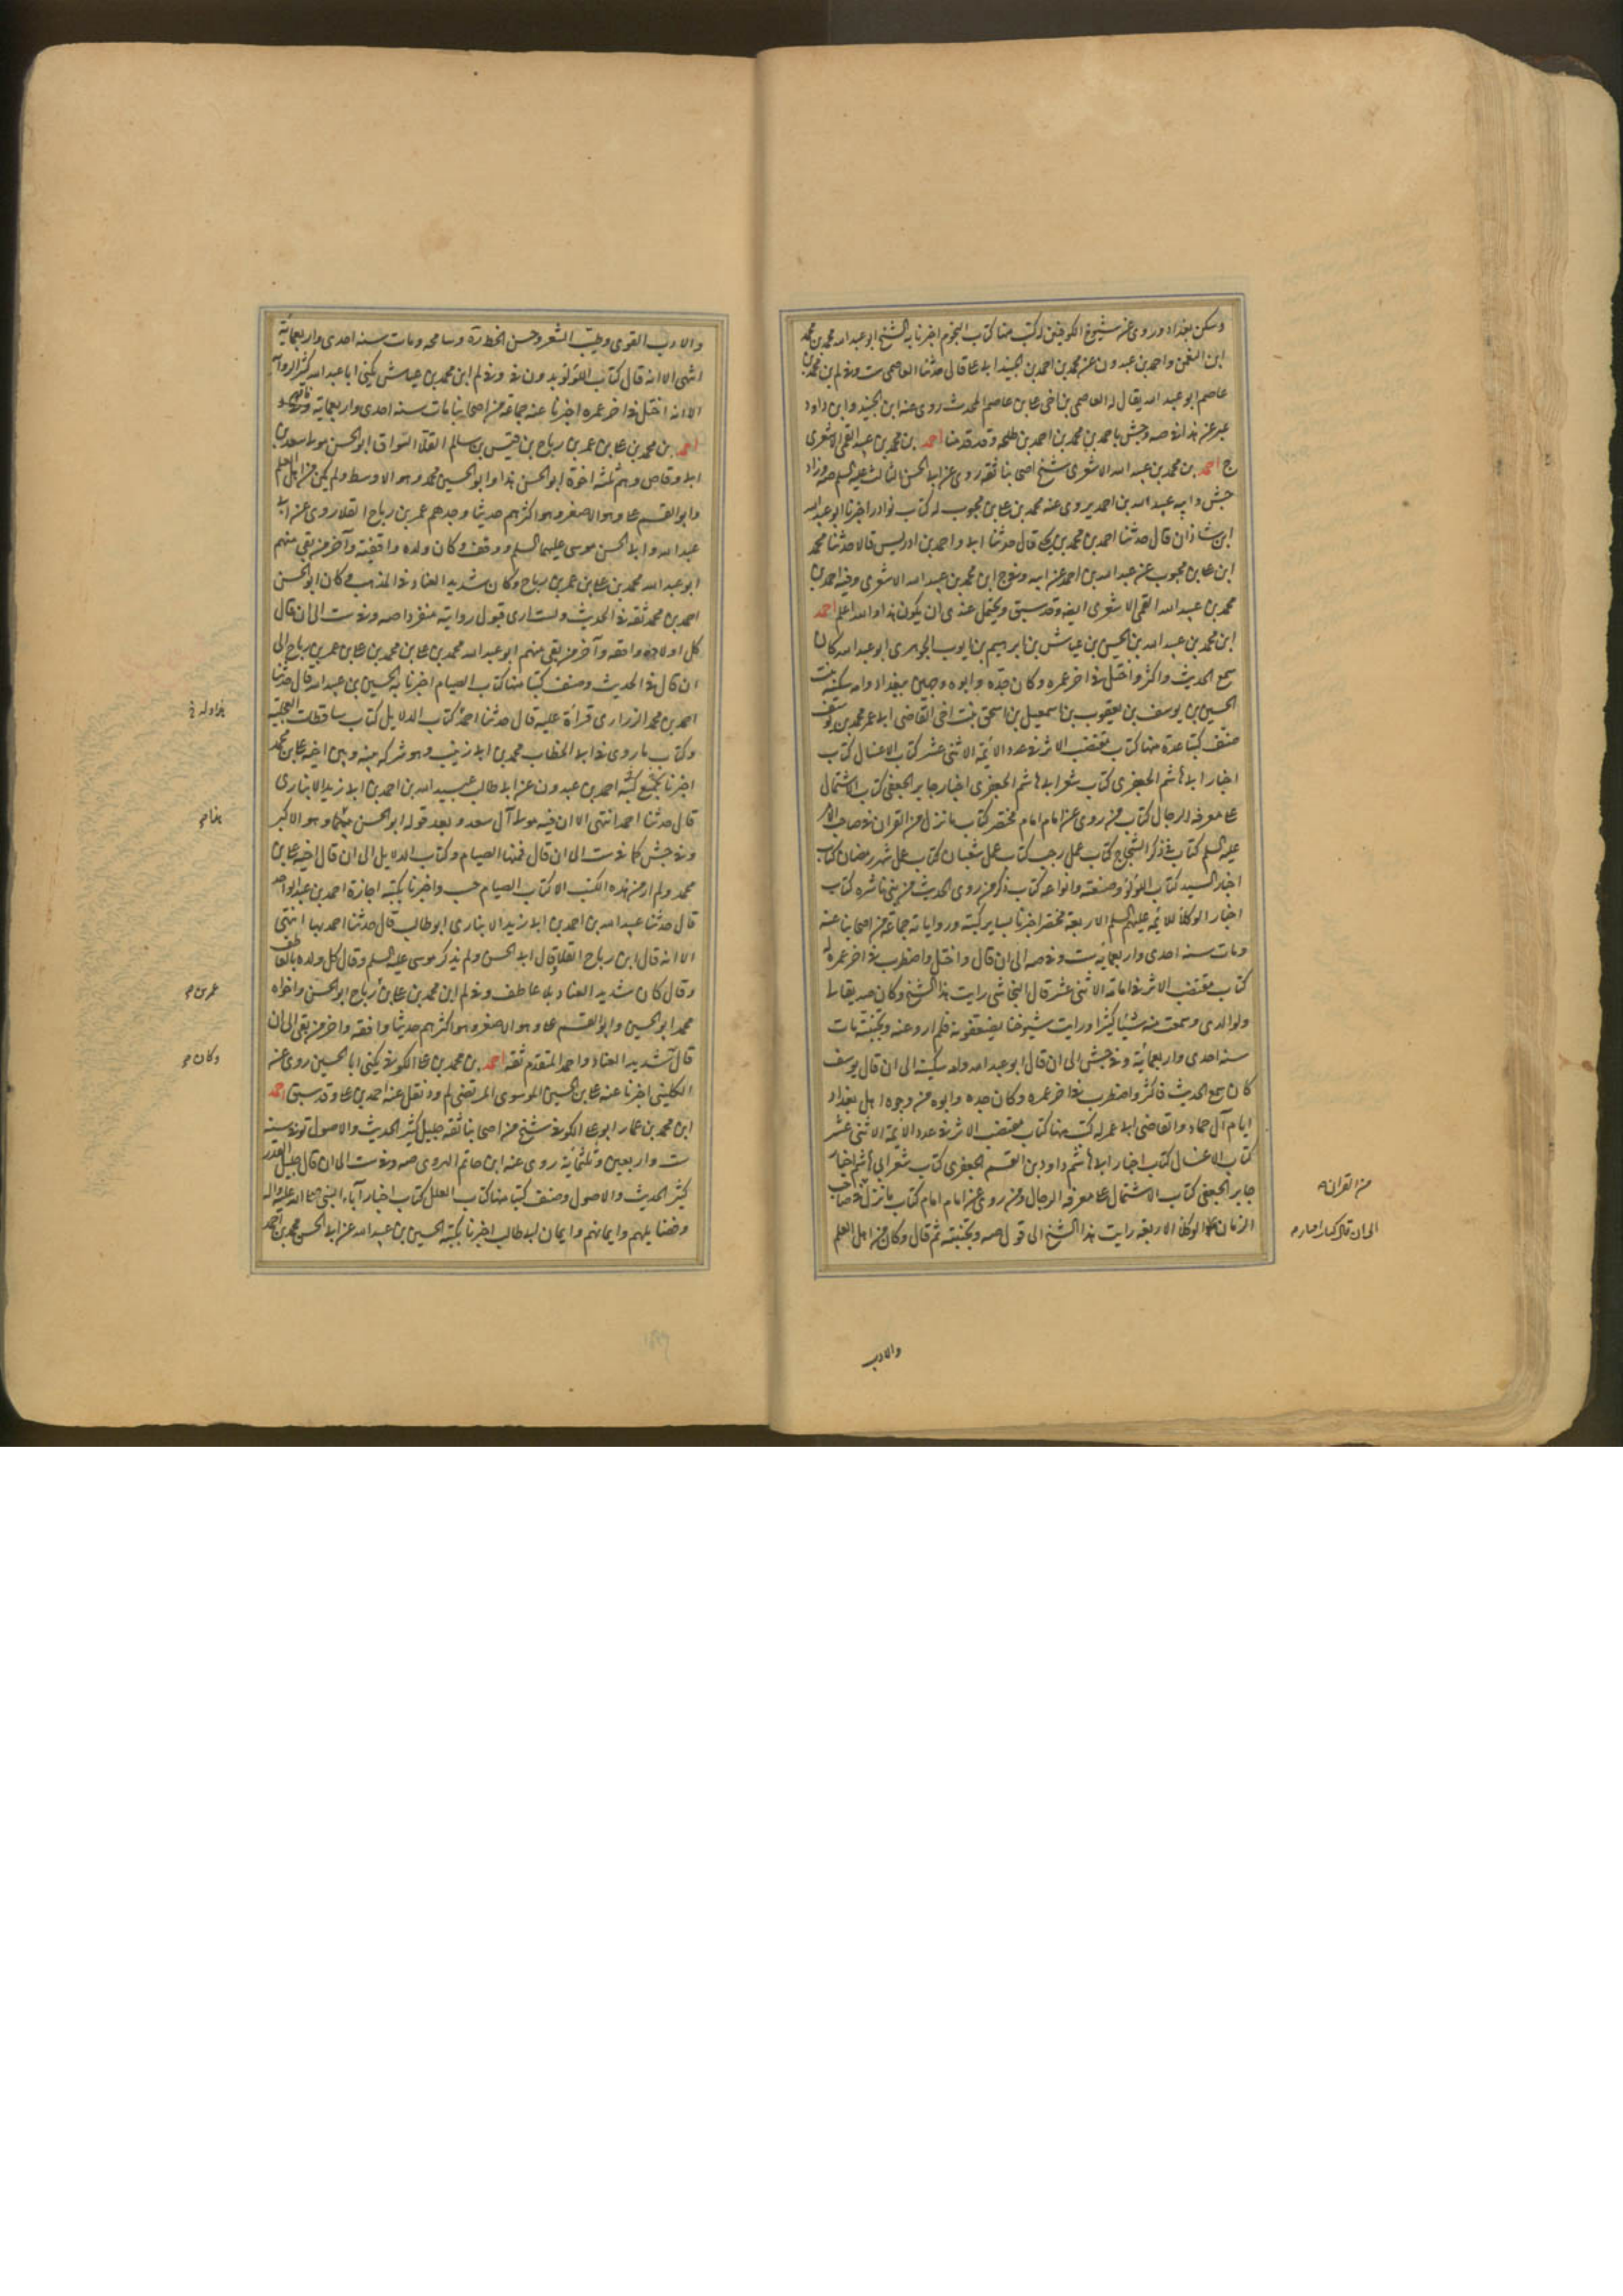 وسكن بغداد وروى عن شيوخ الكوفيين له كتب منها كتاب النجوم اخبرنا به الشيخ ابو عبد الله محمد بن محمد
ابن النعمن واحمد بن عبدون عن محمد بن احمد بن الجنيد ابى على قال حدثنا العاصمى ست وفى لم بن محمد بن
عاصم ابو عبد الله يقال له العاصمى بن اخى على بن عاصم المحدث روى عنه ابن الجنيد وابن داود
عبر عن هذا فى صه وجش باحمد بن محمد بن احمد بن طلحه وقد قدمنا احمد بن محمد بن عبد الله القمى الاشعرى
ج احمد بن محمد بن عبيد الله الاشعرى شيخ اصحابنا ثقه روى عن ابى الحسن الثالث عليه السلم صه وزاد
جش وابنه عبد الله بن احمد يروى عنه محمد بن على بن محبوب له كتاب نوادر اخبرنا ابو عبد الله
ابن شاذان قال حدثنا احمد بن محمد بن يحيى قال حدثنا ابى واحمد بن ادريس قالا حدثنا محمد
ابن على بن محبوب عن عبد الله بن احمد عن ابيه وفى ج ابن محمد بن عبيد الله الاشعرى وفيه احمد بن
محمد بن عبيد الله القمى الاشعرى ايضا وقد سبق ويحتمل عندى ان يكون هذا والله اعلم احمد
ابن محمد بن عبيد الله بن الحسن بن عياش بن ابرهيم بن ايوب الجوهرى ابو عبد الله كان
سمع الحديث واكثر واختل فى اخر عمره وكان جده وابوه وجهين ببغداد وامه سكينه بنت
الحسين بن يوسف بن يعقوب بن اسمعيل بن اسحق بنت اخى القاضى ابى عمر محمد بن يوسف
صنف كتبا عدة منها كتاب مقتضب الاثر فى عدد الائمة الاثنى عشر كتاب الاغسال كتاب
اخبار ابى هاشم الجعفرى كتاب شعر ابى هاشم الجعفرى اخبار جابر الجعفى كتاب الاشتمال
على معرفه الرجال كتاب من روى عن امام امام مختصر كتاب ما نزل من القران فى صاحب الامر
عليه السلم كتاب فى ذكر الشجاج كتاب عمل رجب كتاب عمل شعبان كتاب عمل شهر رمضان كتاب
اخبار السيد كتاب اللؤلؤ وصنعته وانواعه كتاب ذكر من روى الحديث من بنى ناشره كتاب
اخبار الوكلا للائمه عليهم السلم الاربعة مختصر اخبرنا بساير كتبه ورواياته جماعة من اصحابنا عنه
ومات سنه احدى واربعمائه ست وفى صه الى ان قال واختل واضطرب فى اخر عمره له
كتاب مقتضب الاثر فى امامة الاثنى عشر قال النجاشى رايت هذا الشيخ وكان صديقا لى
ولوالدى وسمعت منه شيئا كثيرا ورايت شيوخنا يضعفونه فلم ارو عنه وتجنبته مات
سنه احدى واربعمائة وفى جش الى ان قال ابو عبد الله وامه سكينة الى ان قال يوسف
كان سمع الحديث فاكثر واضطرب فى اخر عمره وكان جده وابوه من وجوه اهل بغداد
ايام آل حماد والقاضى ابى عمر له كتب منها كتاب مقتضب الاثر فى عدد الائمة الاثنى عشر
كتاب الاغسال كتاب اخبار ابى هاشم داود بن القسم الجعفرى كتاب شعر ابى هاشم اخبار
جابر الجعفى كتاب الاشتمال على معرفه الرجال ومن روى عن امام امام كتاب ما نزل فى صاحب
الزمان الوكلا الاربعه رايت هذا الشيخ الى قول صه وتجنبته ثم قال وكان من اهل العلم
من القران
الى ان قال كتاب اخبار
والادب
والادب القوى وطيب الشعر وحسن الخط ره وسامحه ومات سنه احدى واربعمائة
انتهى الا انه قال كتاب اللؤلؤ بدون فى وفى لم ابن محمد بن عياش يكنى ابا عبد الله كثير الرواية
الا انه اختل فى اخر عمره اخبرنا عنه جماعة من اصحابنا مات سنه احدى واربعمائة
احمد بن محمد بن على بن عمر بن رباح بن قيس بن سالم القلاء السواق ابو الحسن مولى سعد بن
ابى وقاص وهم ثلثه اخوة ابو الحسن هذا وابو الحسين محمد وهو الاوسط ولم يكن من اهل العلم
وابو القسم على وهو الاصغر وهو اكثرهم حديثا وجدهم عمر بن رباح القلا روى عن ابى
عبد الله وابى الحسن موسى عليهما السلم ووقف وكان ولده واقفية وآخر من بقى منهم
ابو عبد الله محمد بن على بن عمر بن رباح وكان شديد العناد فى المذهب وكان ابو الحسن
احمد بن محمد ثقة فى الحديث ولست ارى قبول روايته منفردا صه وفى ست الى ان قال
كل اولاده واقفه وآخر من بقى منهم ابو عبد الله محمد بن على بن محمد بن على بن عمر بن رباح الى
ان قال فى الحديث وصنف كتبا منها كتاب الصيام اخبرنا به الحسين بن عبد الله قال حدثنا
احمد بن محمد الزرارى قراة عليه قال حدثنا احمد كتاب الدلايل كتاب سقطات العجلية
وكتاب ما روى فى ابى الخطاب محمد بن ابى زينب وهو شركه بينه وبين اخيه على بن محمد
اخبرنا بجميع كتبه احمد بن عبدون عن ابى طالب عبيد الله بن احمد بن ابى زيد الانبارى
قال حدثنا احمد انتهى الا ان فيه مولى آل سعد وبعد قوله ابو الحسن هذا وهو الاكبر
وفى جش كما فى ست الى ان قال فمنها الصيام وكتاب الدلايل الى ان قال اخيه على بن
محمد ولم ار من هذه الكتب الا كتاب الصيام حسب واخبرنا بكتبه اجازة احمد بن عبد الواحد
قال حدثنا عبيد الله بن احمد بن ابى زيد الانبارى ابو طالب قال حدثنا احمد بها انتهى
الا انه قال ابن رباح القلا وقال ابى الحسن ولم يذكر موسى عليه السلم وقال كل ولده بالعاطف
وقال كان شديد العناد بلا عاطف وفى لم ابن محمد بن على بن رباح ابو الحسن واخواه
محمد ابو الحسين وابو القسم على وهو الاصغر وهو اكثرهم حديثا واقفه واخر من بقى الى ان
قال شديد العناد واحمد المتقدم ثقه احمد بن محمد بن على الكوفى يكنى ابا الحسين روى عن
الكلينى اخبرنا عنه على بن الحسين الموسوى المرتضى لم ود نقل عنه احمد بن على وقد سبق احمد
ابن محمد بن عمار ابو على الكوفى شيخ من اصحابنا ثقه جليل كثير الحديث والاصول توفى سنه
ست واربعين وثلثمائة روى عنه ابن حاتم القزوينى صه وفى ست الى ان قال جليل القدر
كثير الحديث والاصول وصنف كتبا منها كتاب العلل كتاب اخبار آباء النبى صلى الله عليه واله
وفضايلهم وايمانهم وايمان ابى طالب اخبرنا بكتبه الحسين بن عبيد الله عن ابى الحسن محمد بن احمد
عمر بن م
وكان م